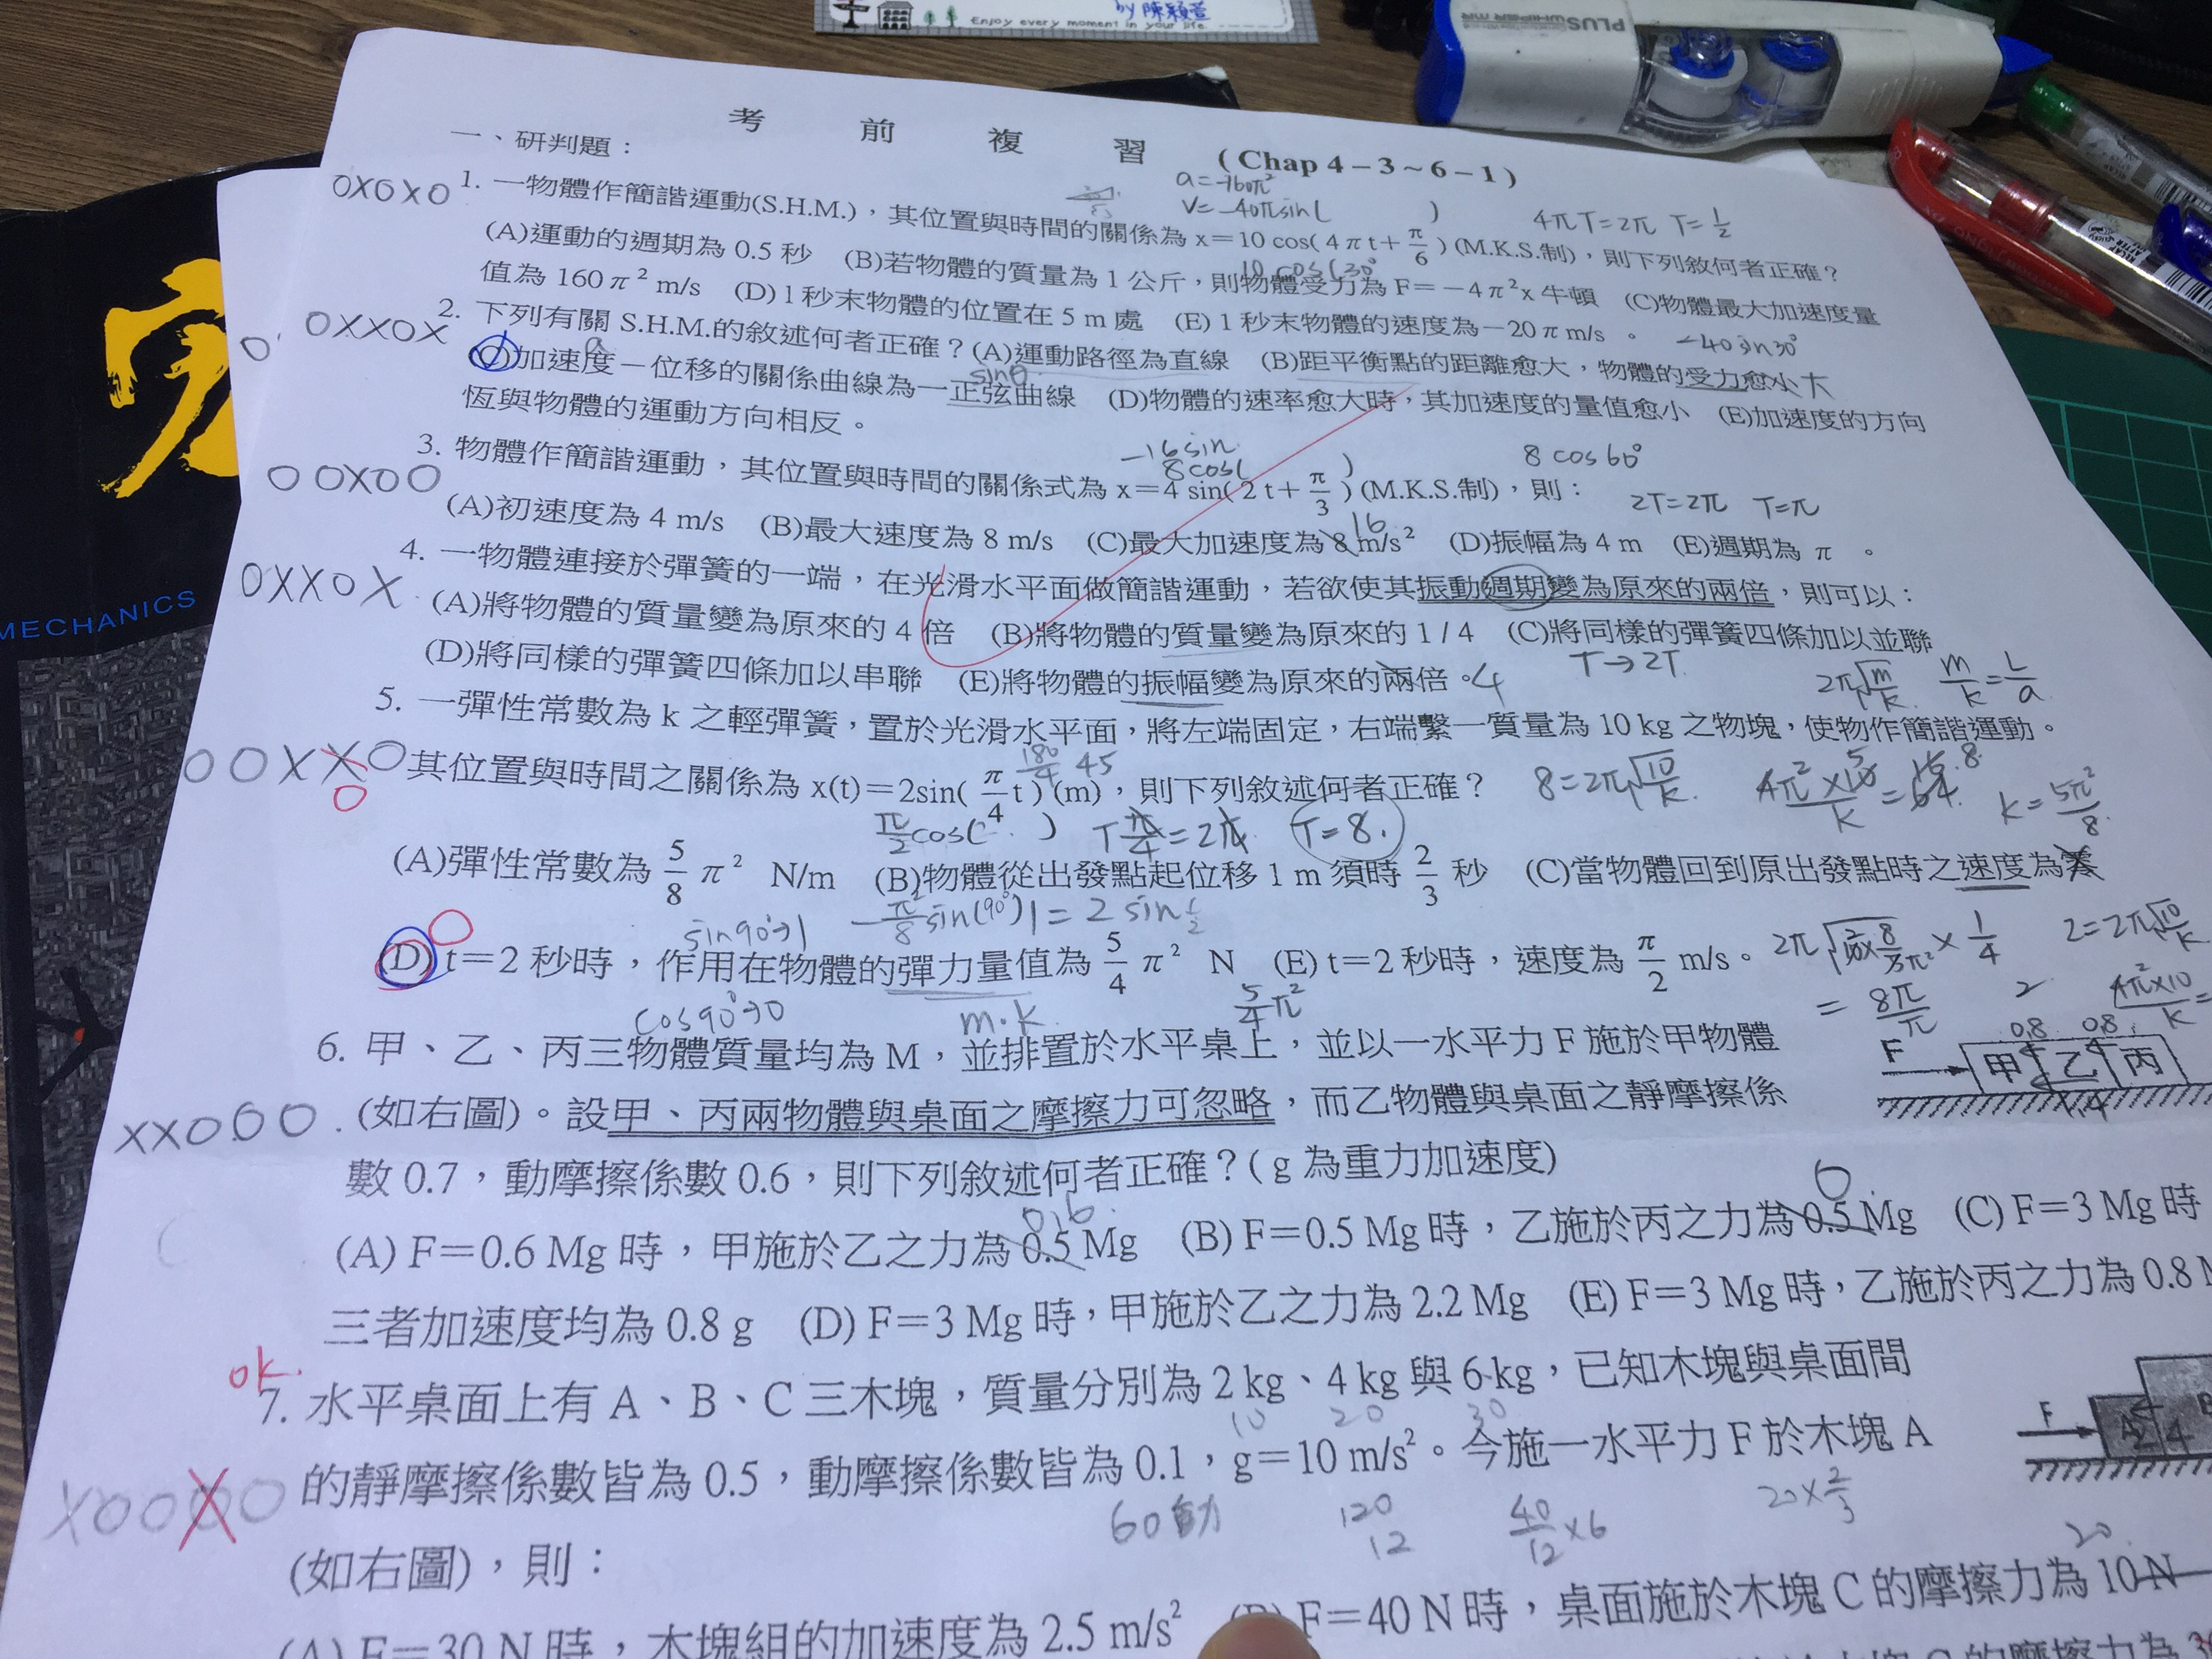 by 陳穎萱
Enjoy every moment in your life
PLUS
WHIPER MR
考 前 複 習 (Chap 4－3～6－1)
一、研判題：
a=-160π²
v=-40πsin( )
4πT=2π T=1/2
OXOXO 1. 一物體作簡諧運動(S.H.M.)，其位置與時間的關係為 x＝10 cos( 4πt＋π/6 ) (M.K.S.制)，則下列敘何者正確？
(A)運動的週期為 0.5 秒 (B)若物體的質量為 1 公斤，則物體受力為 F＝－4π²x 牛頓 (C)物體最大加速度量
10 cos(30°
值為 160π² m/s (D) 1 秒末物體的位置在 5 m 處 (E) 1 秒末物體的速度為－20π m/s 。
-40sin30°
OXXOX 2. 下列有關 S.H.M.的敘述何者正確？(A)運動路徑為直線 (B)距平衡點的距離愈大，物體的受力愈小 大
(C)加速度－位移的關係曲線為一正弦曲線 (D)物體的速率愈大時，其加速度的量值愈小 (E)加速度的方向
sinθ
恆與物體的運動方向相反。
-16sin
8cos( )
8 cos60°
OOXOO 3. 物體作簡諧運動，其位置與時間的關係式為 x＝4 sin( 2 t＋π/3 ) (M.K.S.制)，則：
2T=2π T=π
(A)初速度為 4 m/s (B)最大速度為 8 m/s (C)最大加速度為 8 m/s² (D)振幅為 4 m (E)週期為 π 。
16
OXXOX 4. 一物體連接於彈簧的一端，在光滑水平面做簡諧運動，若欲使其振動週期變為原來的兩倍，則可以：
(A)將物體的質量變為原來的 4 倍 (B)將物體的質量變為原來的 1 / 4 (C)將同樣的彈簧四條加以並聯
(D)將同樣的彈簧四條加以串聯 (E)將物體的振幅變為原來的兩倍。4
T→2T 2π√m/k m/k=L/a
5. 一彈性常數為 k 之輕彈簧，置於光滑水平面，將左端固定，右端繫一質量為 10 kg 之物塊，使物作簡諧運動。
OOXXO 其位置與時間之關係為 x(t)＝2sin( π/4 t ) (m)，則下列敘述何者正確？
O
180/4 45
8=2π√10/k
k=5π²/8
π/2 cos( ) Tπ/4=2π T=8.
(A)彈性常數為 5/8 π² N/m (B)物體從出發點起位移 1 m 須時 2/3 秒 (C)當物體回到原出發點時之速度為零
sin90°→1
(D) t＝2 秒時，作用在物體的彈力量值為 5/4 π² N (E) t＝2 秒時，速度為 π/2 m/s。
cos90°→0 m·k 5/4π²
=8π/π
2=2π√10/k
6. 甲、乙、丙三物體質量均為 M，並排置於水平桌上，並以一水平力 F 施於甲物體
F 甲 乙 丙
0.8 0.8
XXOOO (如右圖)。設甲、丙兩物體與桌面之摩擦力可忽略，而乙物體與桌面之靜摩擦係
數 0.7，動摩擦係數 0.6，則下列敘述何者正確？( g 為重力加速度)
0.6 0
(A) F＝0.6 Mg 時，甲施於乙之力為 0.5 Mg (B) F＝0.5 Mg 時，乙施於丙之力為 0.5 Mg (C) F＝3 Mg 時
三者加速度均為 0.8 g (D) F＝3 Mg 時，甲施於乙之力為 2.2 Mg (E) F＝3 Mg 時，乙施於丙之力為 0.8
ok.
7. 水平桌面上有 A、B、C 三木塊，質量分別為 2 kg、4 kg 與 6 kg，已知木塊與桌面間
10 20 30
F
XOOXO 的靜摩擦係數皆為 0.5，動摩擦係數皆為 0.1，g＝10 m/s²。今施一水平力 F 於木塊 A
60動 120/12 40/12×6 20×2/3
(如右圖)，則：
20
(A) F＝30 N 時，木塊組的加速度為 2.5 m/s² F＝40 N 時，桌面施於木塊 C 的摩擦力為 10 N
MECHANICS